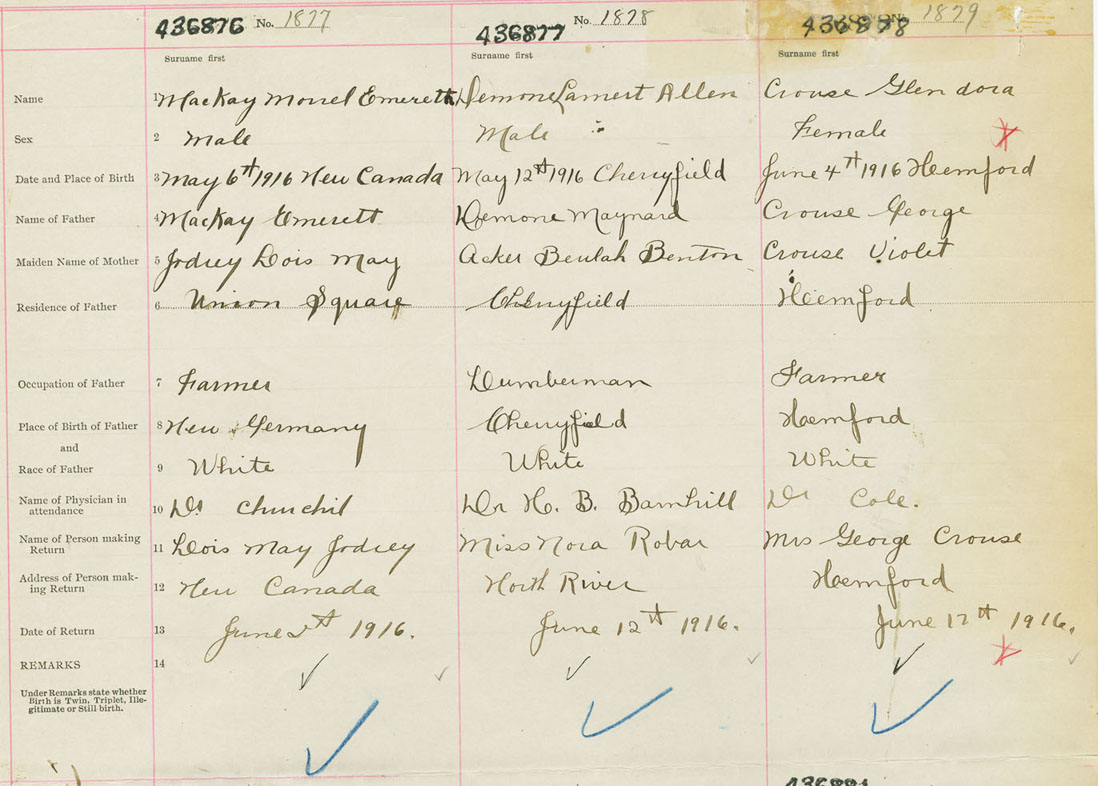 436876 No. 1877 436877 No. 1878 1879
Surname first Surname first Surname first
Name 1 MacKay Morrel Emerett Demone Lamert Allen Crouse Glendora
Sex 2 Male Male Female
Date and Place of Birth 3 May 6th 1916 New Canada May 12th 1916 Cherryfield June 4th 1916 Hemford
Name of Father 4 MacKay Emerett Demone Maynard Crouse George
Maiden Name of Mother 5 Jodrey Lois May Acker Beulah Benton Crouse Violet
Residence of Father 6 Union Square Cherryfield Hemford
Occupation of Father 7 Farmer Lumberman Farmer
Place of Birth of Father 8 New Germany Cherryfield Hemford
and
Race of Father 9 White White White
Name of Physician in
attendance 10 Dr Churchil Dr H. B. Barnhill Dr Cole.
Name of Person making
Return 11 Lois May Jodrey Miss Nora Robar Mrs George Crouse
Address of Person mak-
ing Return 12 New Canada North River Hemford
Date of Return 13 June 1916. June 12th 1916. June 17th 1916.
REMARKS 14
Under Remarks state whether
Birth is Twin, Triplet, Ille-
gitimate or Still birth.